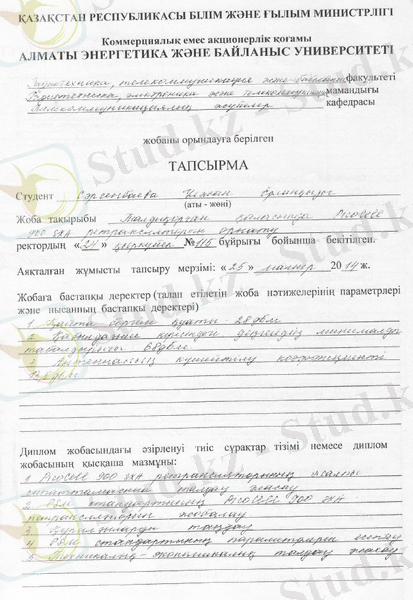 ҚАЗАҚСТАН РЕСПУБЛИКАСЫ БІЛІМ ЖӘНЕ ҒЫЛЫМ МИНИСТРЛІГІ
Коммерциялық емес акционерлік қоғамы
АЛМАТЫ ЭНЕРГЕТИКА ЖӘНЕ БАЙЛАНЫС УНИВЕРСИТЕТІ
Радиотехника, телекоммуникация және байланыс факультеті
Радиотехника, электроника және телекоммуникация мамандығы
Телекоммуникациялық жүйелер кафедрасы
жобаны орындауға берілген
ТАПСЫРМА
Студент
(аты - жөні)
Жоба тақырыбы Талдықорған қаласында PicoCell
900 ретрансляторын орнату
ректордың «24» қыркүйек №115 бұйрығы бойынша бекітілген.
Аяқталған жұмысты тапсыру мерзімі: «25» мамыр 2014 ж.
Жобаға бастапқы деректер (талап етілетін жоба нәтижелерінің параметрлері
және нысанның бастапқы деректері)
1 қуаты - 28 дВм
2 минималды
3 Антеннаның күшейтілу коэффициенті
Диплом жобасындағы әзірленуі тиіс сұрақтар тізімі немесе диплом
жобасының қысқаша мазмұны:
1 PicoCell 900 ретрансляторының жалпы
сипаттамасына талдау жасау
2 GSM стандартының PicoCell 900
ретрансляторын жобалау
3 таңдау
4 GSM стандартының параметрлерін есептеу
5 Техникалық-экономикалық талдау жасау
Stud.kz